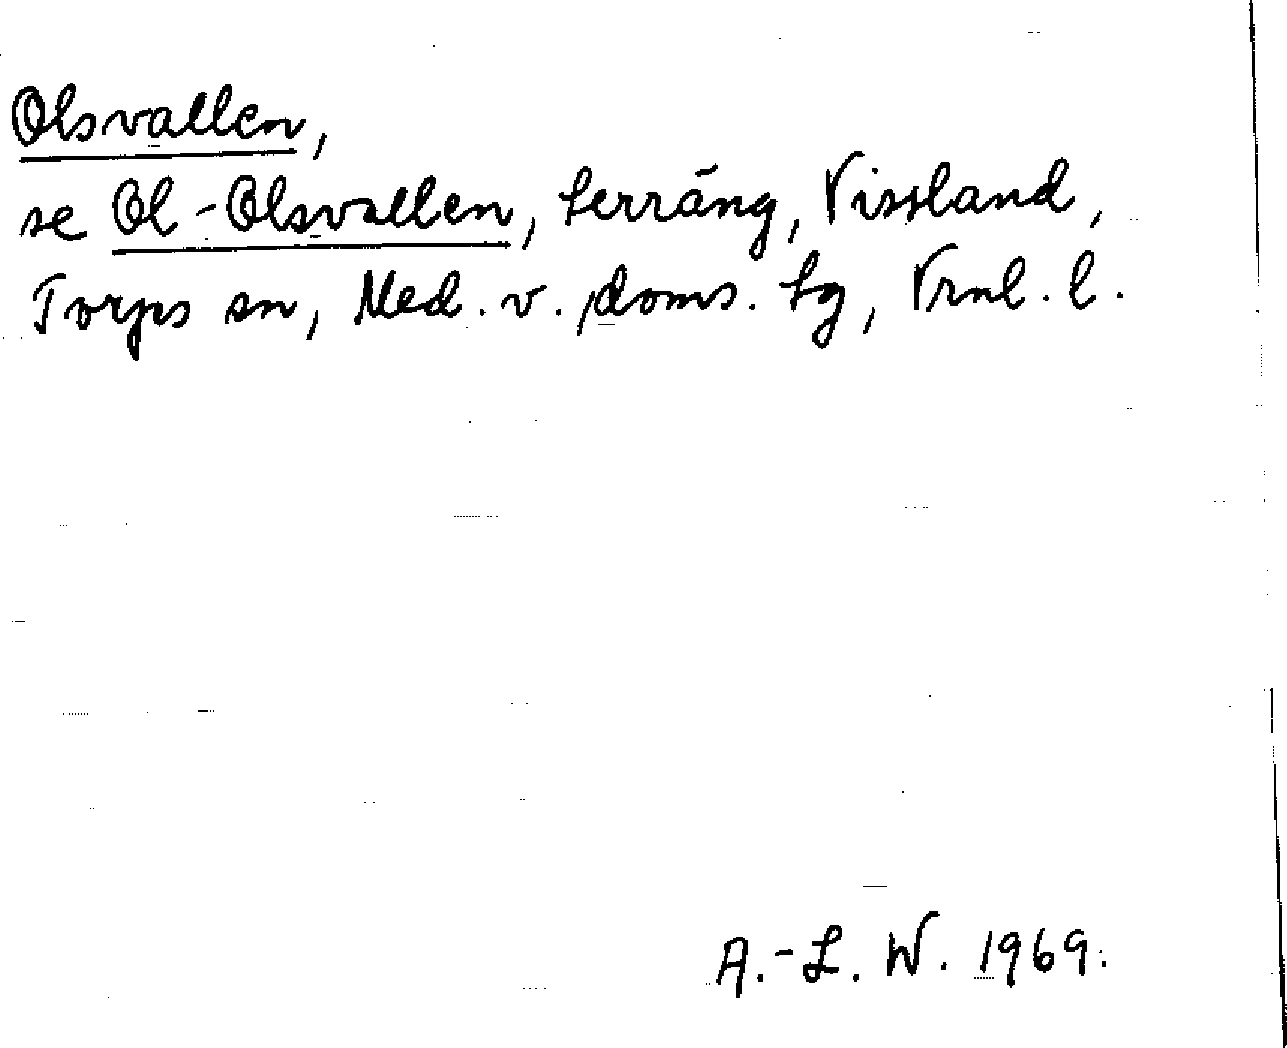 Olsvallen,
se Ol-Olsvallen, terräng, Vissland,
Torps sn, Med. v. doms. tg, Vrnl. l.
A.-L. W. 1969.